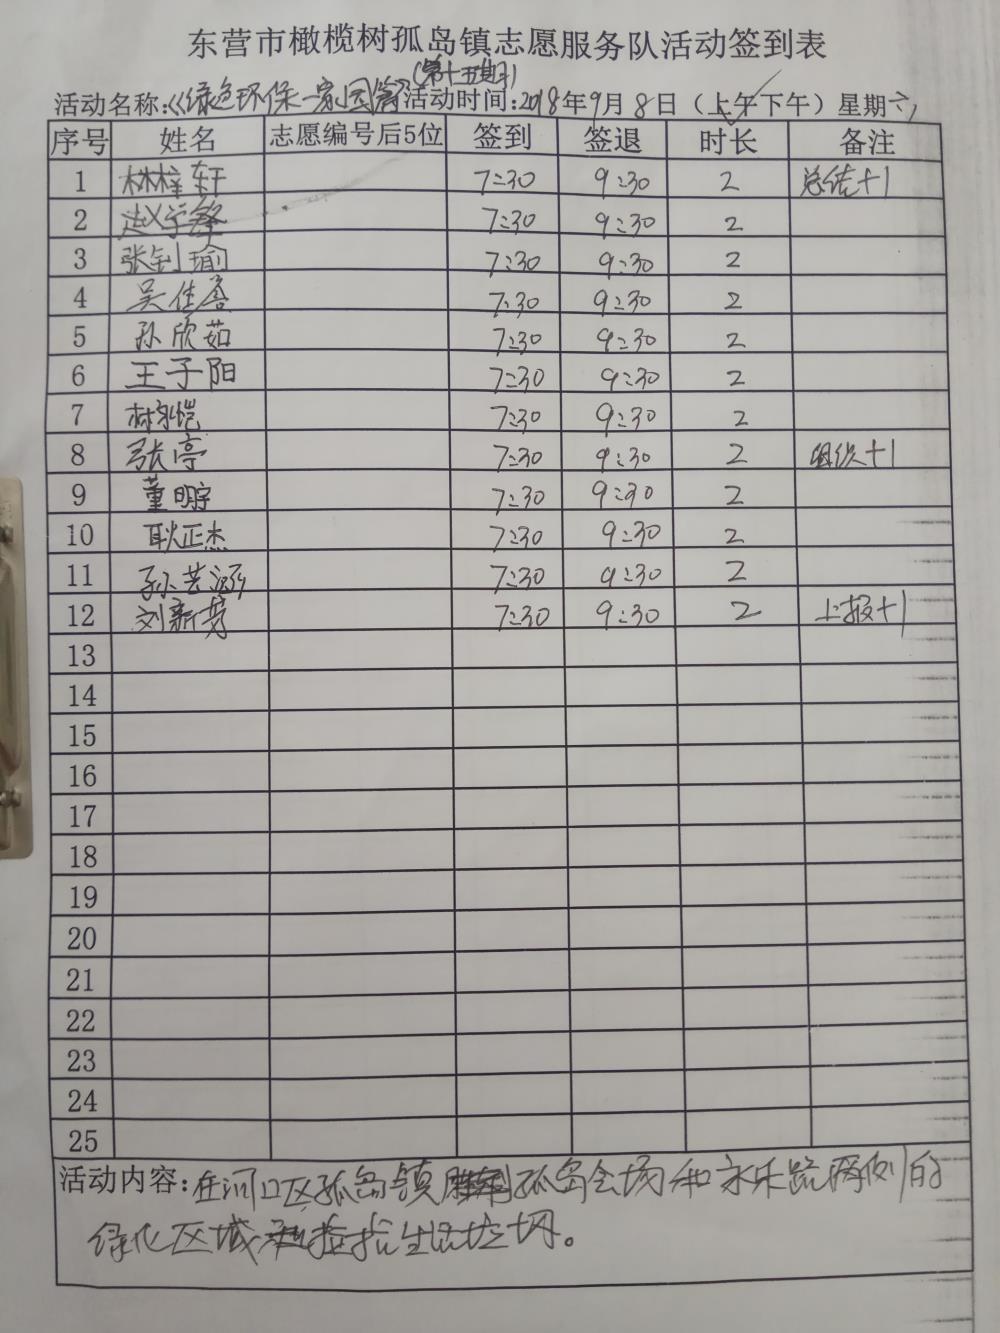 东营市橄榄树孤岛镇志愿服务队活动签到表
(第十五期)
活动名称:《绿色环保一家园篇》活动时间:2018年9月8日（上午下午）星期六
序号 姓名 志愿编号后5位 签到 签退 时长 备注
1 林梓轩 7:30 9:30 2 总结+1
2 赵学锋 7:30 9:30 2
3 张钊瑜 7:30 9:30 2
4 吴佳睿 7:30 9:30 2
5 孙欣茹 7:30 9:30 2
6 王子阳 7:30 9:30 2
7 林永恺 7:30 9:30 2
8 张亭 7:30 9:30 2 组织+1
9 董明宇 7:30 9:30 2
10 耿正杰 7:30 9:30 2
11 孙艺涵 7:30 9:30 2
12 刘新芳 7:30 9:30 2 上报+1
13
14
15
16
17
18
19
20
21
22
23
24
25
活动内容:在河口区孤岛镇孤岛会场和永乐路两侧的
绿化区域捡拾生活垃圾。